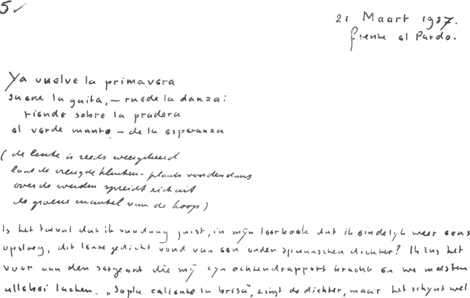 5✓
21 Maart 1937.
frente al Pardo.
Ya vuelve la primavera
suene la gaita, – ruede la danza:
tiende sobre la pradera
el verde manto – de la esperanza
(de lente is reeds weergekeerd
laat de vreugde klinken – plaats voor den dans
over de weiden spreidt zich uit
de groene mantel van de hoop)
Is het toeval dat ik vandaag juist, in mijn leerboek dat ik eindelijk weer eens
opsloeg, dit lente gedicht vond van een ouden spaanschen dichter? Ik las het
voor aan den sergeant die mij zijn ochtendrapport bracht en we moesten
allebei lachen. „Sopla caliente la brisa", zingt de dichter, maar het schijnt wel